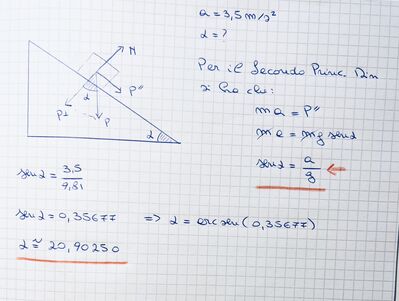 a = 3,5 m/s²
α = ?
Per il Secondo Princ. Din
si ha che:
N
α
P"
P⊥
P
α
m a = P"
m a = mg senα
senα = a/g
senα = 3,5/9,81
senα = 0,35677 => α = arcsen (0,35677)
α ≈ 20,90250